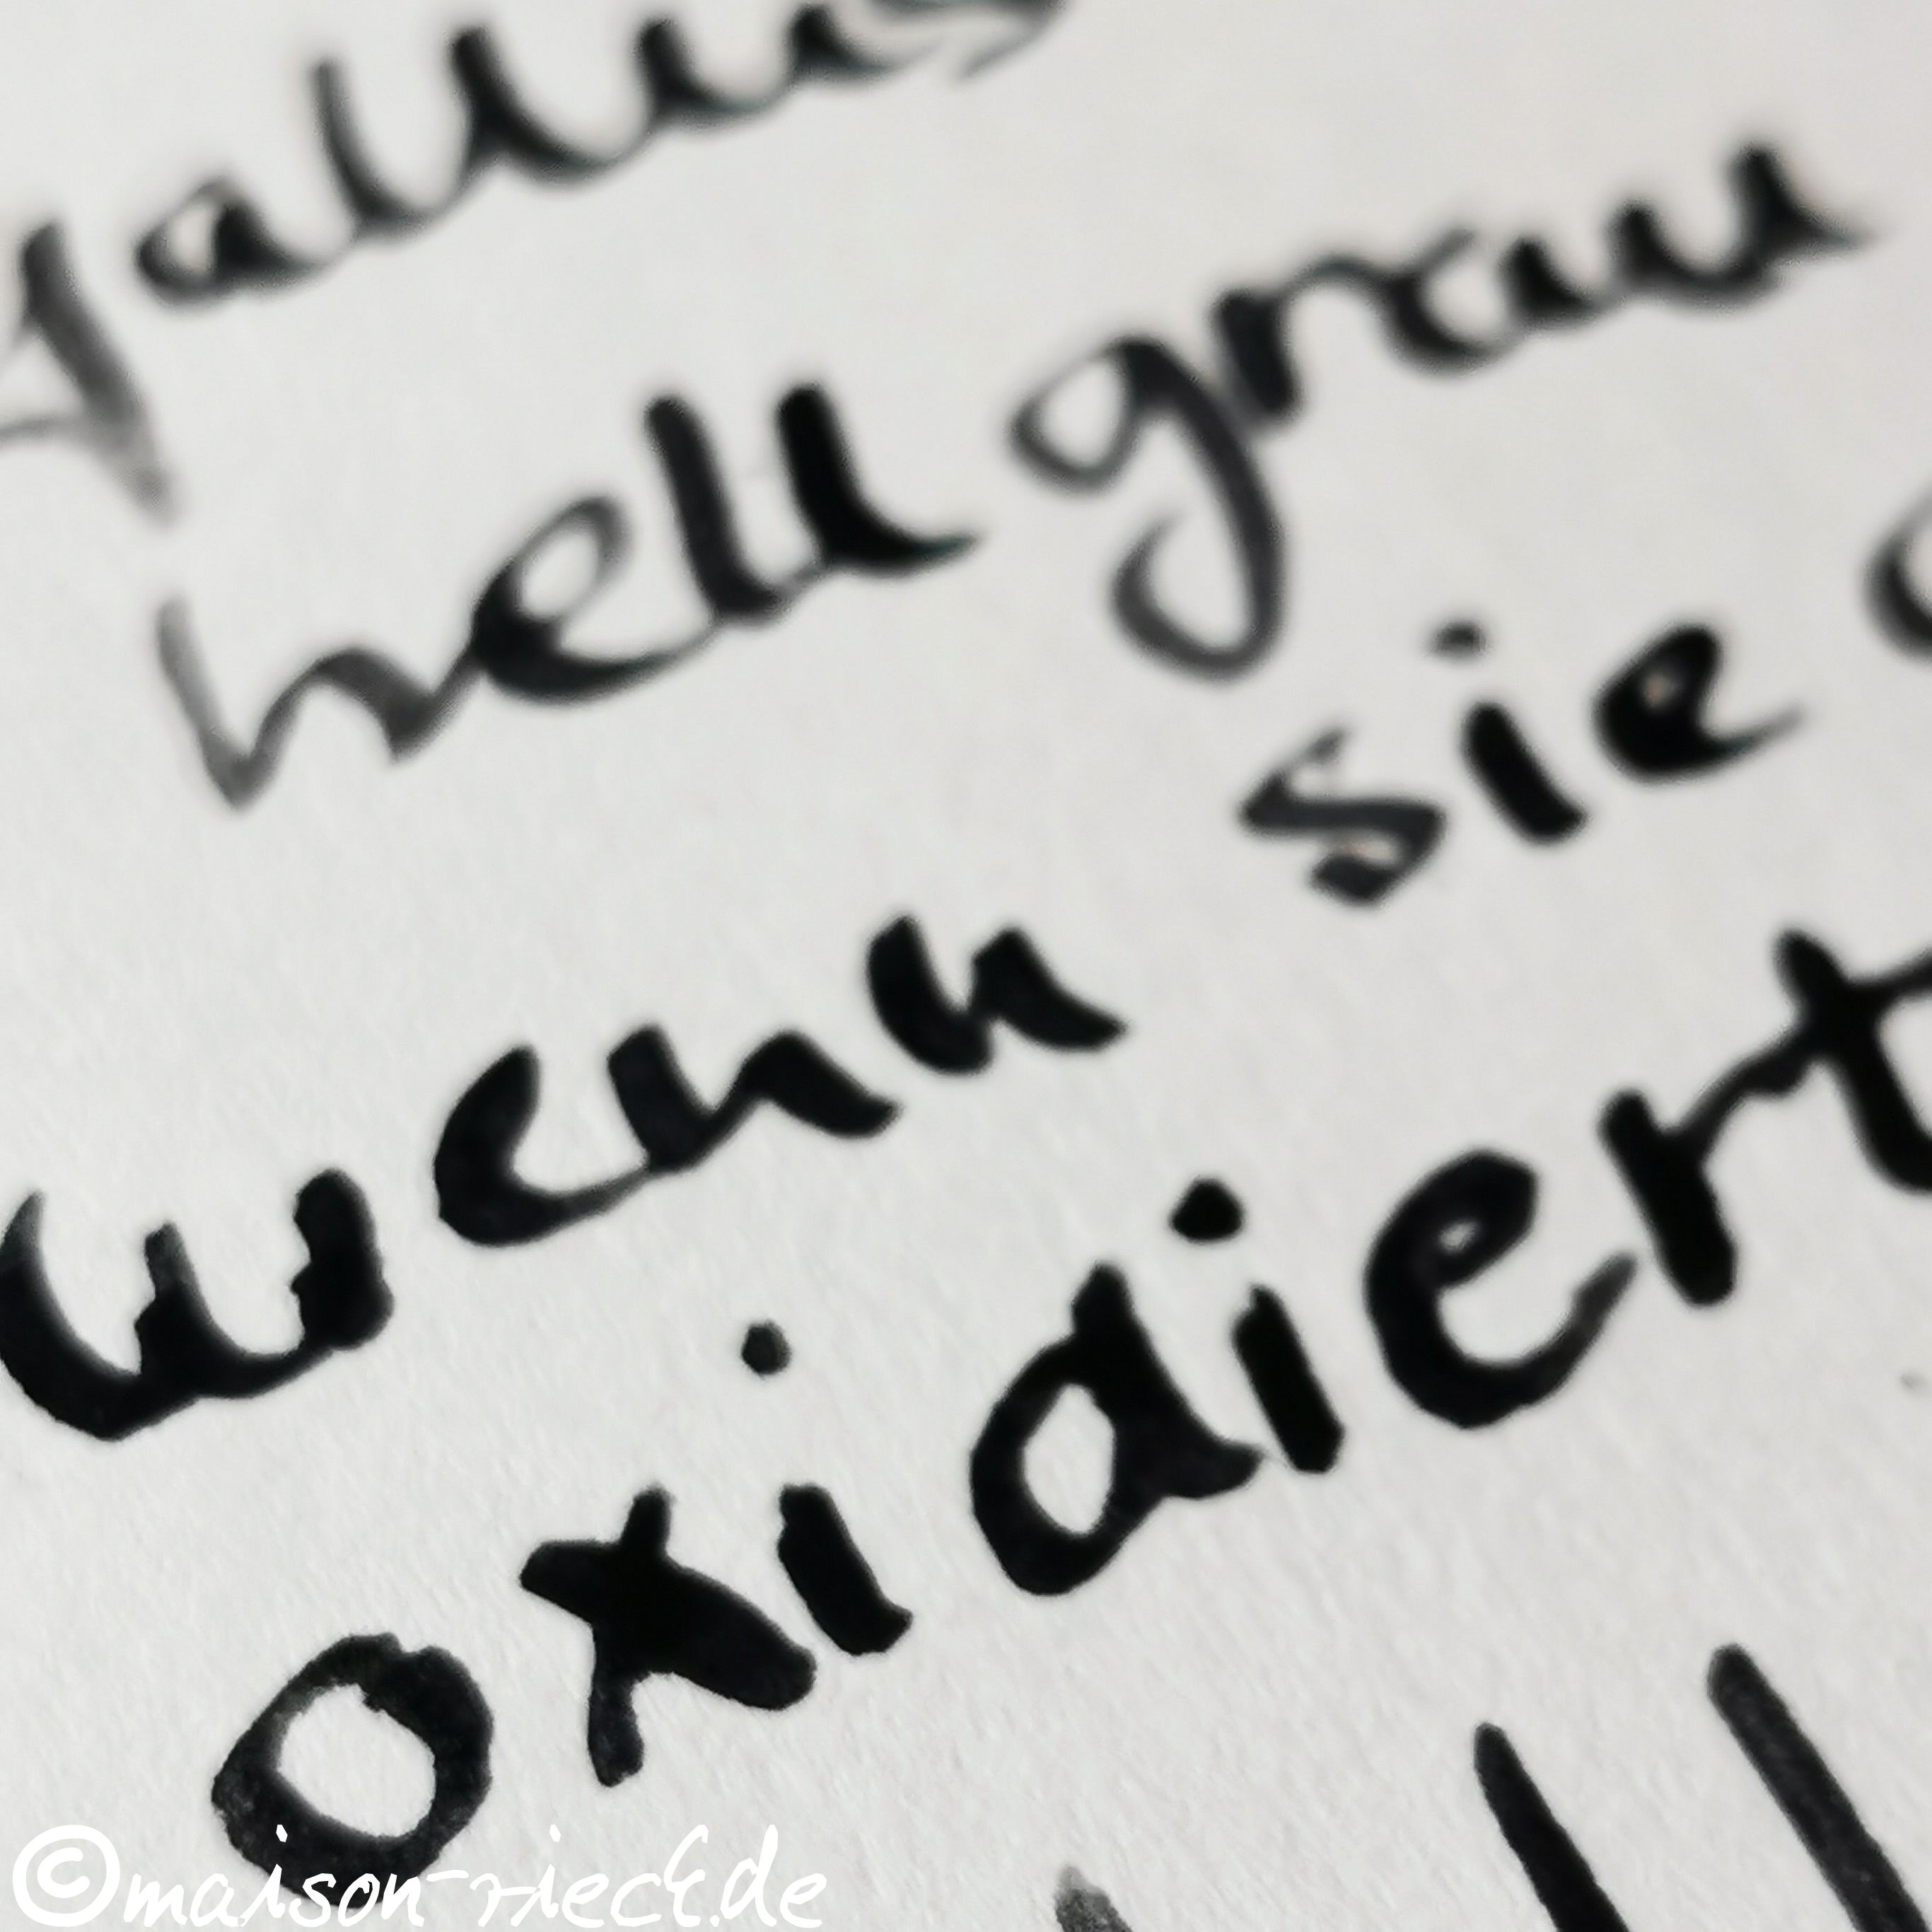 gallus
hellgrau
wenn sie
oxidiert
©maison-rieck.de